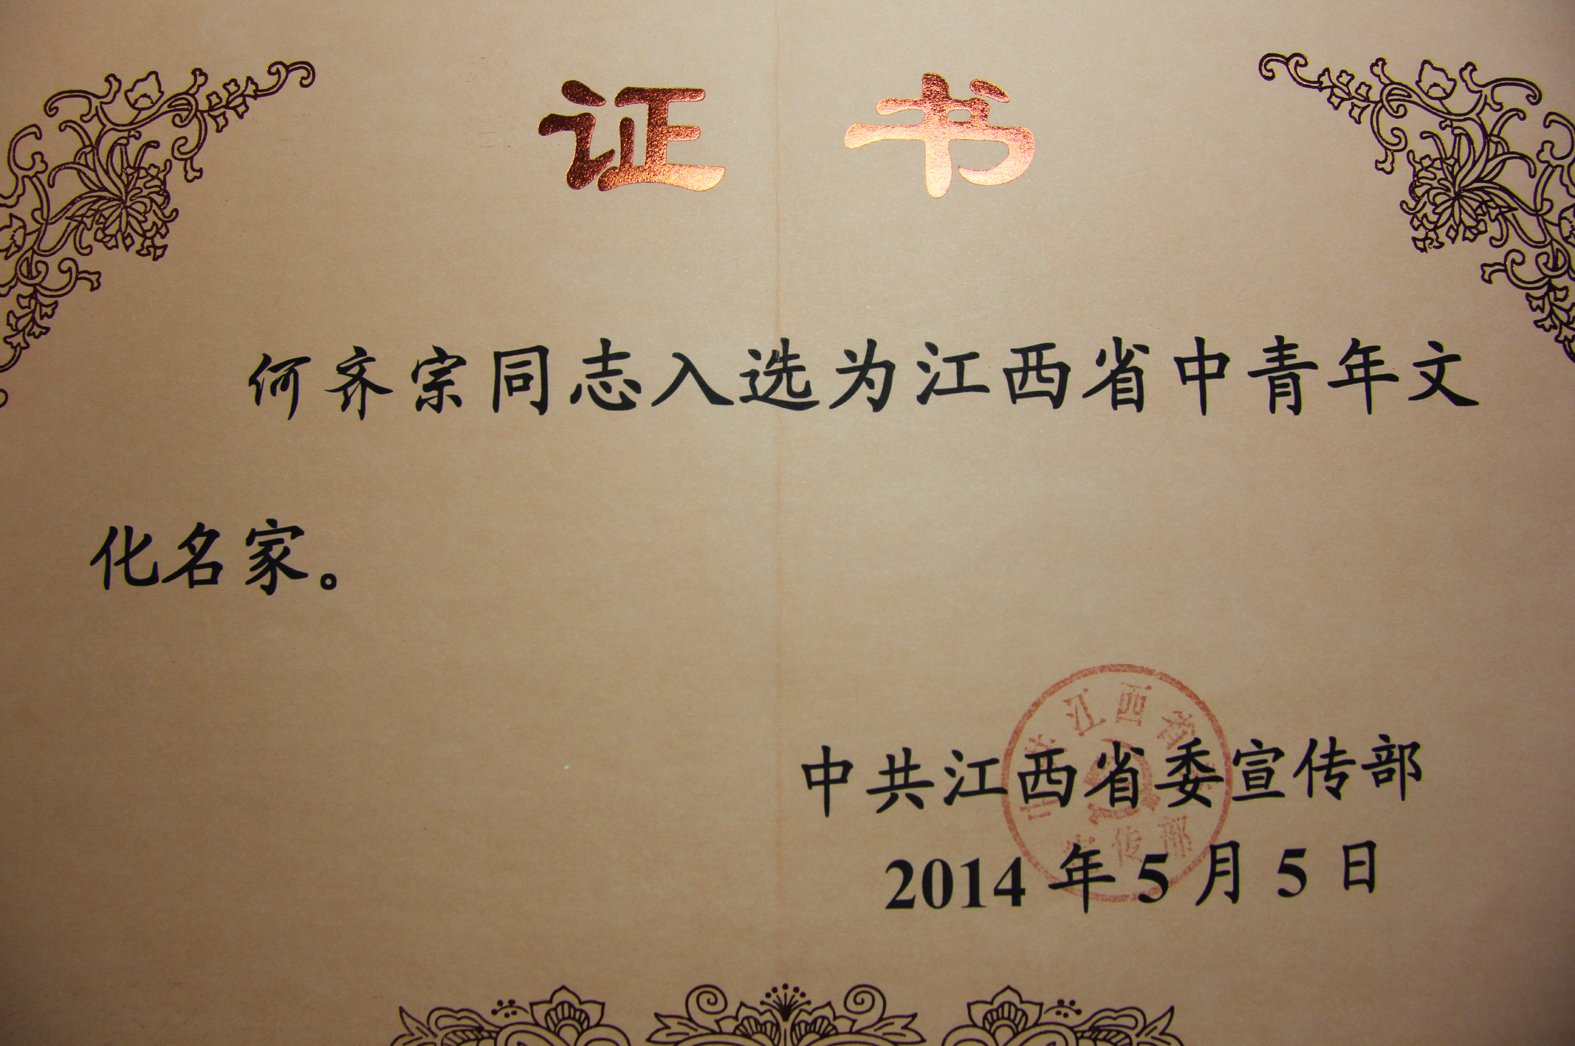 证书
何齐宗同志入选为江西省中青年文
化名家。
江西省
中共江西省委宣传部
传部
2014年5月5日